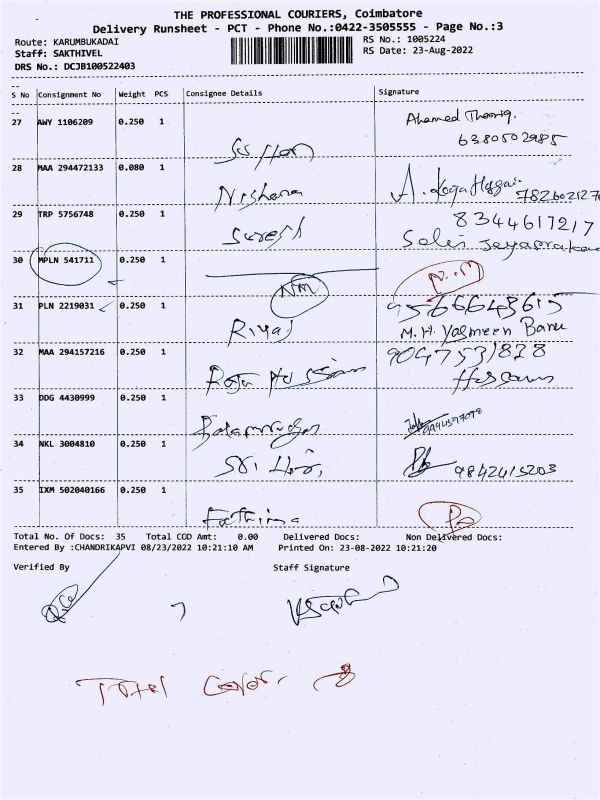 THE PROFESSIONAL COURIERS, Coimbatore
Delivery Runsheet - PCT - Phone No.:0422-3505555 - Page No.:3
Route: KARUMBUKADAI RS No.: 1005224
Staff: SAKTHIVEL RS Date: 23-Aug-2022
DRS No.: DCJB100522403
S No Consignment No Weight PCS Consignee Details Signature
27 AWY 1106209 0.250 1 Ahamed
6380502985
28 MAA 294472133 0.080 1
Nishana
29 TRP 5756748 0.250 1 8344617217
Suresh
30 MPLN 541711 0.250 1
NM
31 PLN 2219031 0.250 1 9566643615
Riyaj M.H. Yasmeen Banu
32 MAA 294157216 0.250 1
Raja Hussain
33 DDG 4430999 0.250 1
34 NKL 3004810 0.250 1
9842415203
35 IXM 502040166 0.250 1
Fathima
Total No. Of Docs: 35 Total COD Amt: 0.00 Delivered Docs: Non Delivered Docs:
Entered By :CHANDRIKAPVI 08/23/2022 10:21:10 AM Printed On: 23-08-2022 10:21:20
Verified By Staff Signature
Total